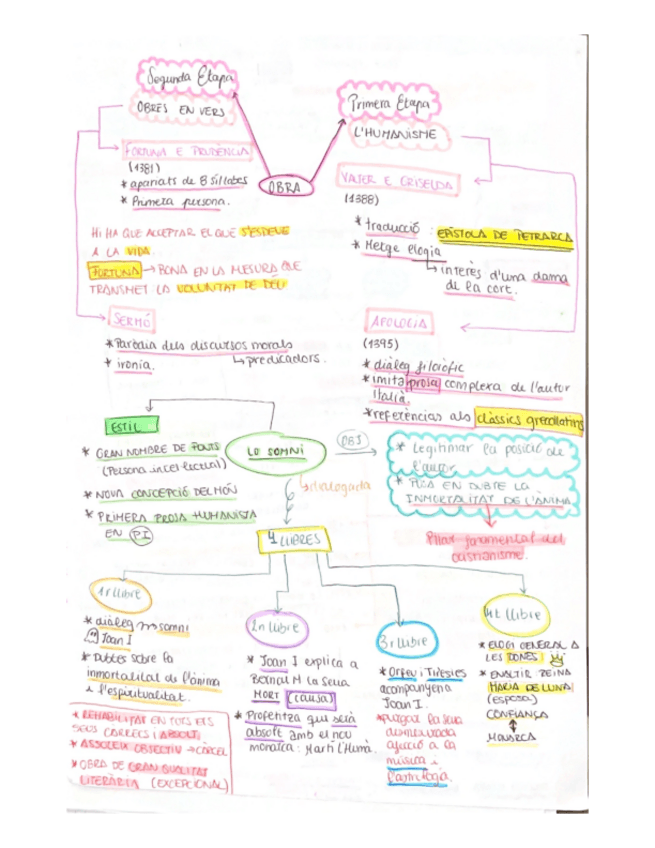 Segunda Etapa
OBRES EN VERS
FORTUNA E PRUDÈNCIA
(1381)
* apariats de 8 síl·labes
* Primera persona.
HI HA QUE ACCEPTAR EL QUE S'ESDEVÉ
A LA VIDA
FORTUNA → BONA EN LA MESURA QUE
TRANSMET LA VOLUNTAT DE DEU
SERMÓ
* Paròdia dels discursos morals
↳ predicadors.
* ironia.
OBRA
Primera Etapa
L'HUMANISME
VALTER E GRISELDA
(1388)
* traducció : EPÍSTOLA DE PETRARCA
* Metge elogia
↳ interès d'una dama
de la cort.
APOLOGIA
(1395)
* diàleg filosòfic
* imita prosa complexa de l'autor
italià.
* referències als clàssics grecollatins
ESTIL
* GRAN NOMBRE DE FONTS
(Persona intel·lectual)
* NOVA CONCEPCIÓ DEL MÓN
* PRIMERA PROSA HUMANISTA
EN PI
LO SOMNI
↳ dialogada
OBJ
* Legitimar la posició de
l'autor
* POSA EN DUBTE LA
INMORTALITAT DE L'ÀNIMA
Pilar fonamental del
cristianisme.
4 LLIBRES
1r llibre
* diàleg → somni
Joan I
* Dubtes sobre la
inmortalitat de l'ànima
i l'espiritualitat.
* REHABILITAT EN TOTS ELS
SEUS CÀRRECS I ABSOLT
* ASSOLEIX OBJECTIU → CÀRCEL
* OBRA DE GRAN QUALITAT
LITERÀRIA (EXCEPCIONAL)
2n llibre
* Joan I explica a
Bernat M la seua
MORT (causa)
* Profetitza que serà
absolt amb el nou
monarca: Martí l'Humà.
3r llibre
* Orfeu i Tirèsies
acompanyen a
Joan I.
* purgar la seua
desmesurada
afició a la
música i
l'astrologia.
4t llibre
* ELOGI GENERAL A
LES DONES
* ENALTIR REINA
MARIA DE LUNA
(esposa)
CONFIANÇA
↕
MONARCA